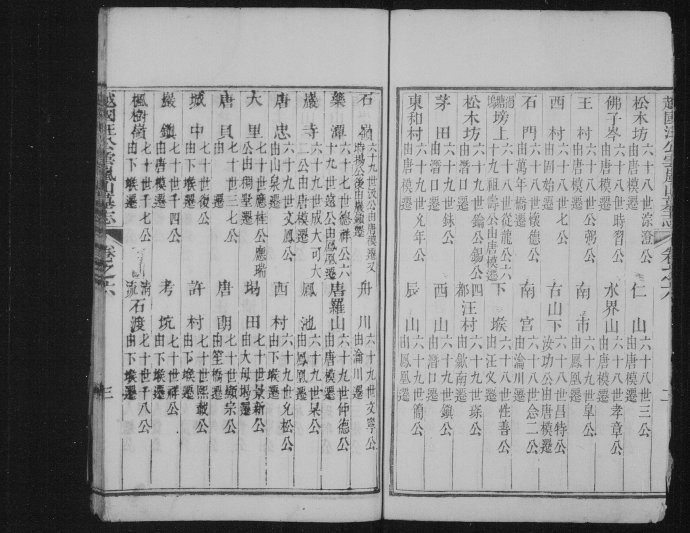 越國汪公雲嵐山墓志 卷之六 二
松木坊 六十八世淙澄公 由唐模遷
仁山 六十八世三公 由唐模遷
佛子岑 六十八世時習公 由唐模遷
水界山 六十八世孝章公 由唐模遷
王村 六十八世公弼公 由唐模遷
南市 六十八世阜公 由鳳凰遷
西村 六十八世七公 由固始遷
石山下 六十八世昌特公 汝功公由唐模遷
石門 六十八世懷德公 由萬年橋遷
南官 六十八世念二公 由瀹川遷
塝上 六十八世從龍公六 十九祖壽公由唐模遷
下堠 六十八世性善公 由汪交遷
松木坊 六十九世鑰公錫公 由唐模遷
四都汪村 六十九世琢公 由歙南遷
茅田 六十九世銇公 由潛口遷
西山 六十九世鎮公 由潛口遷
東和村 六十九世允年公 由唐模遷
辰山 六十九世簡公 由鳳凰遷
石嶺 六十九世泗公由唐模遷又 時揚公後由嚴鎮遷
舟川 六十九世文寧公 由瀹川遷
藥潭 六十七世德祥公六 十九世遠公由鳳凰遷
唐羅山 六十九世仲德公 由唐模遷
巖寺 六十九世成大可大 二公由唐模遷
鳳池 六十九世杲公 由鳳凰遷
唐忠 六十九世文鳳公 由山泉遷
西村 六十九世允松公 由下堠遷
大里 七十世應桂公應瑞 公由稠墅遷
場田 七十世景新公 由大母堨遷
唐貝 七十世三七公 由
唐朝 七十世顯宗公 由笙橋遷
城中 七十世復公 由下堠遷
許村 七十世熙載公 由下堠遷
巖鎮 七十世千四公 由唐模遷
考坑 七十世祥公 由下堠遷
楓樹嶺 七十世千七公 由下堠遷
石渡 七十世千八公 由下堠遷
越國汪公雲嵐山墓志 卷之六 三